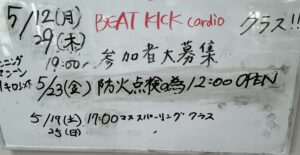 5/12(月) BEAT KICK cardio クラス!!
29(木)
19:00~ 参加者大募集
5/23(金) 防火点検の為 12:00 OPEN
5/17(土) 17:00 マススパーリング クラス
25(日)